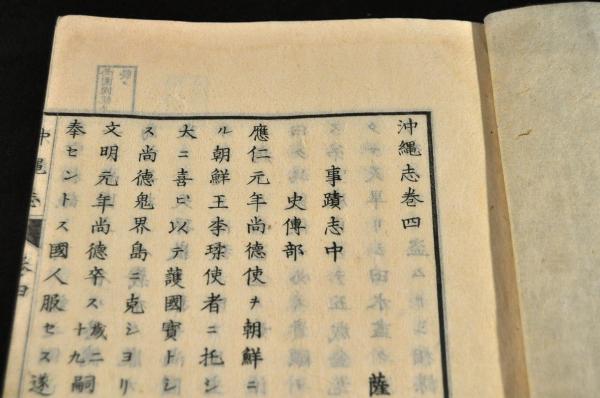 沖縄志巻四
薩
事蹟志中
史傳部
應仁元年尚德使ヲ朝鮮ニ
ル朝鮮王李琛使者ニ托シ
大ニ喜ヒ以テ護國寶トシ
ス尚德鬼界島ニ克シヨリ
文明元年尚德卒ス歳二十九嗣
奉セントス國人服セス遂
沖縄志
巻四